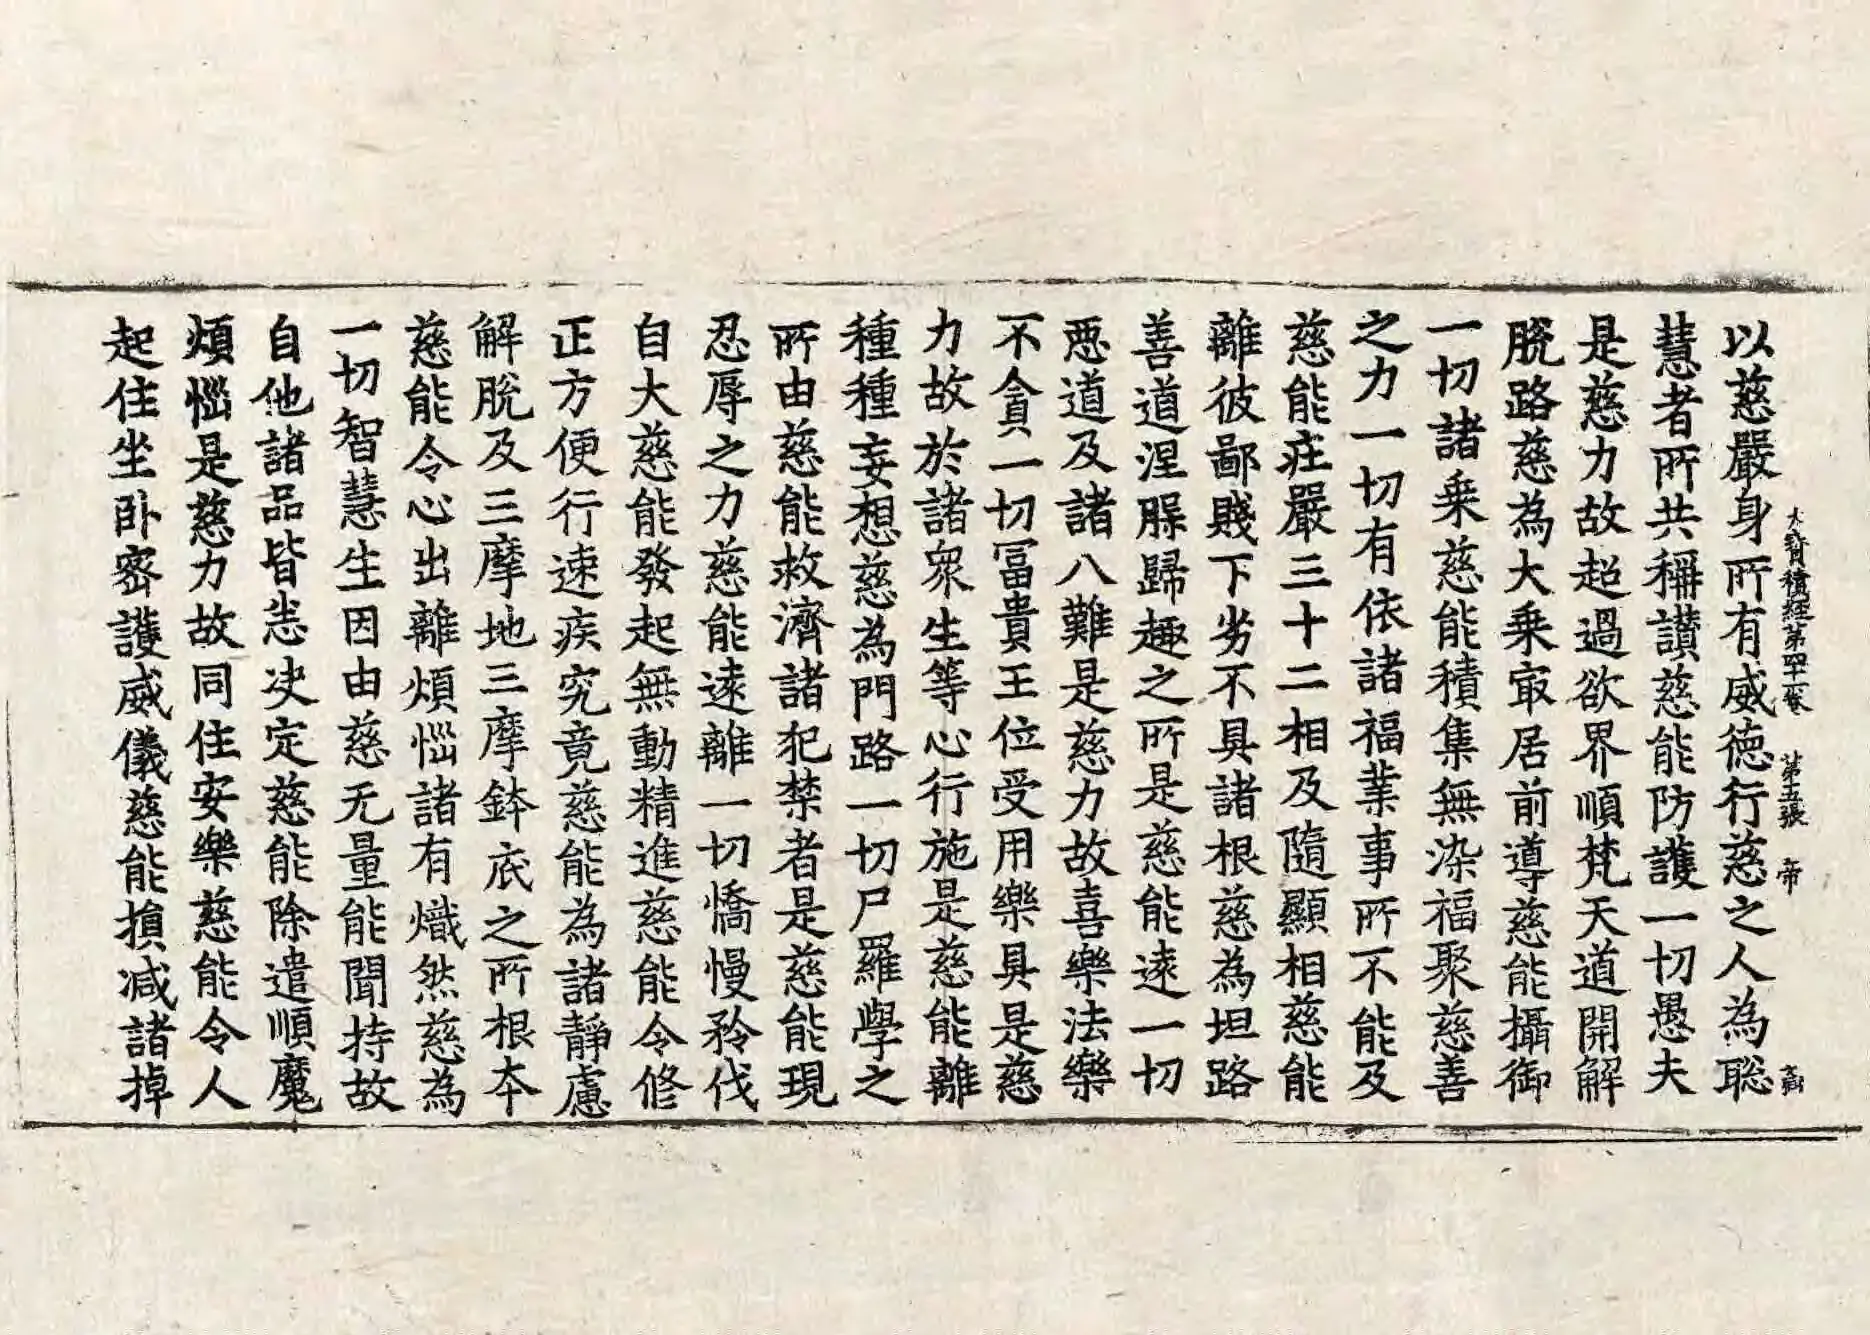 大寶積經第四十一卷 第五張 帝
以慈嚴身所有威德行慈之人為聡
慧者所共稱讃慈能防護一切愚夫
是慈力故超過欲界順梵天道開解
脫路慈為大乗㝡居前導慈能攝御
一切諸乗慈能積集無染福聚慈善
之力一切有依諸福業事所不能及
慈能庄嚴三十二相及隨顯相慈能
離彼鄙賤下劣不具諸根慈為坦路
善道涅槃歸趣之所是慈能遠一切
惡道及諸八難是慈力故喜樂法樂
不貪一切冨貴王位受用樂具是慈
力故於諸衆生等心行施是慈能離
種種妄想慈為門路一切尸羅學之
所由慈能救濟諸犯禁者是慈能現
忍辱之力慈能遠離一切憍慢矜伐
自大慈能發起無動精進慈能令修
正方便行速疾究竟慈能為諸靜慮
解脫及三摩地三摩鉢底之所根本
慈能令心出離煩惱諸有熾然慈為
一切智慧生因由慈无量能聞持故
自他諸品皆悉决定慈能除遣順魔
煩惱是慈力故同住安樂慈能令人
起住坐卧密護威儀慈能損减諸掉